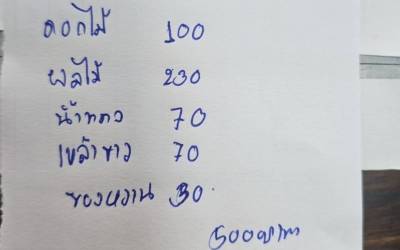 ดอกไม้ 100
ผลไม้ 230
น้ำแดง 70
เหล้าขาว 70
ของหวาน 30
500บาท